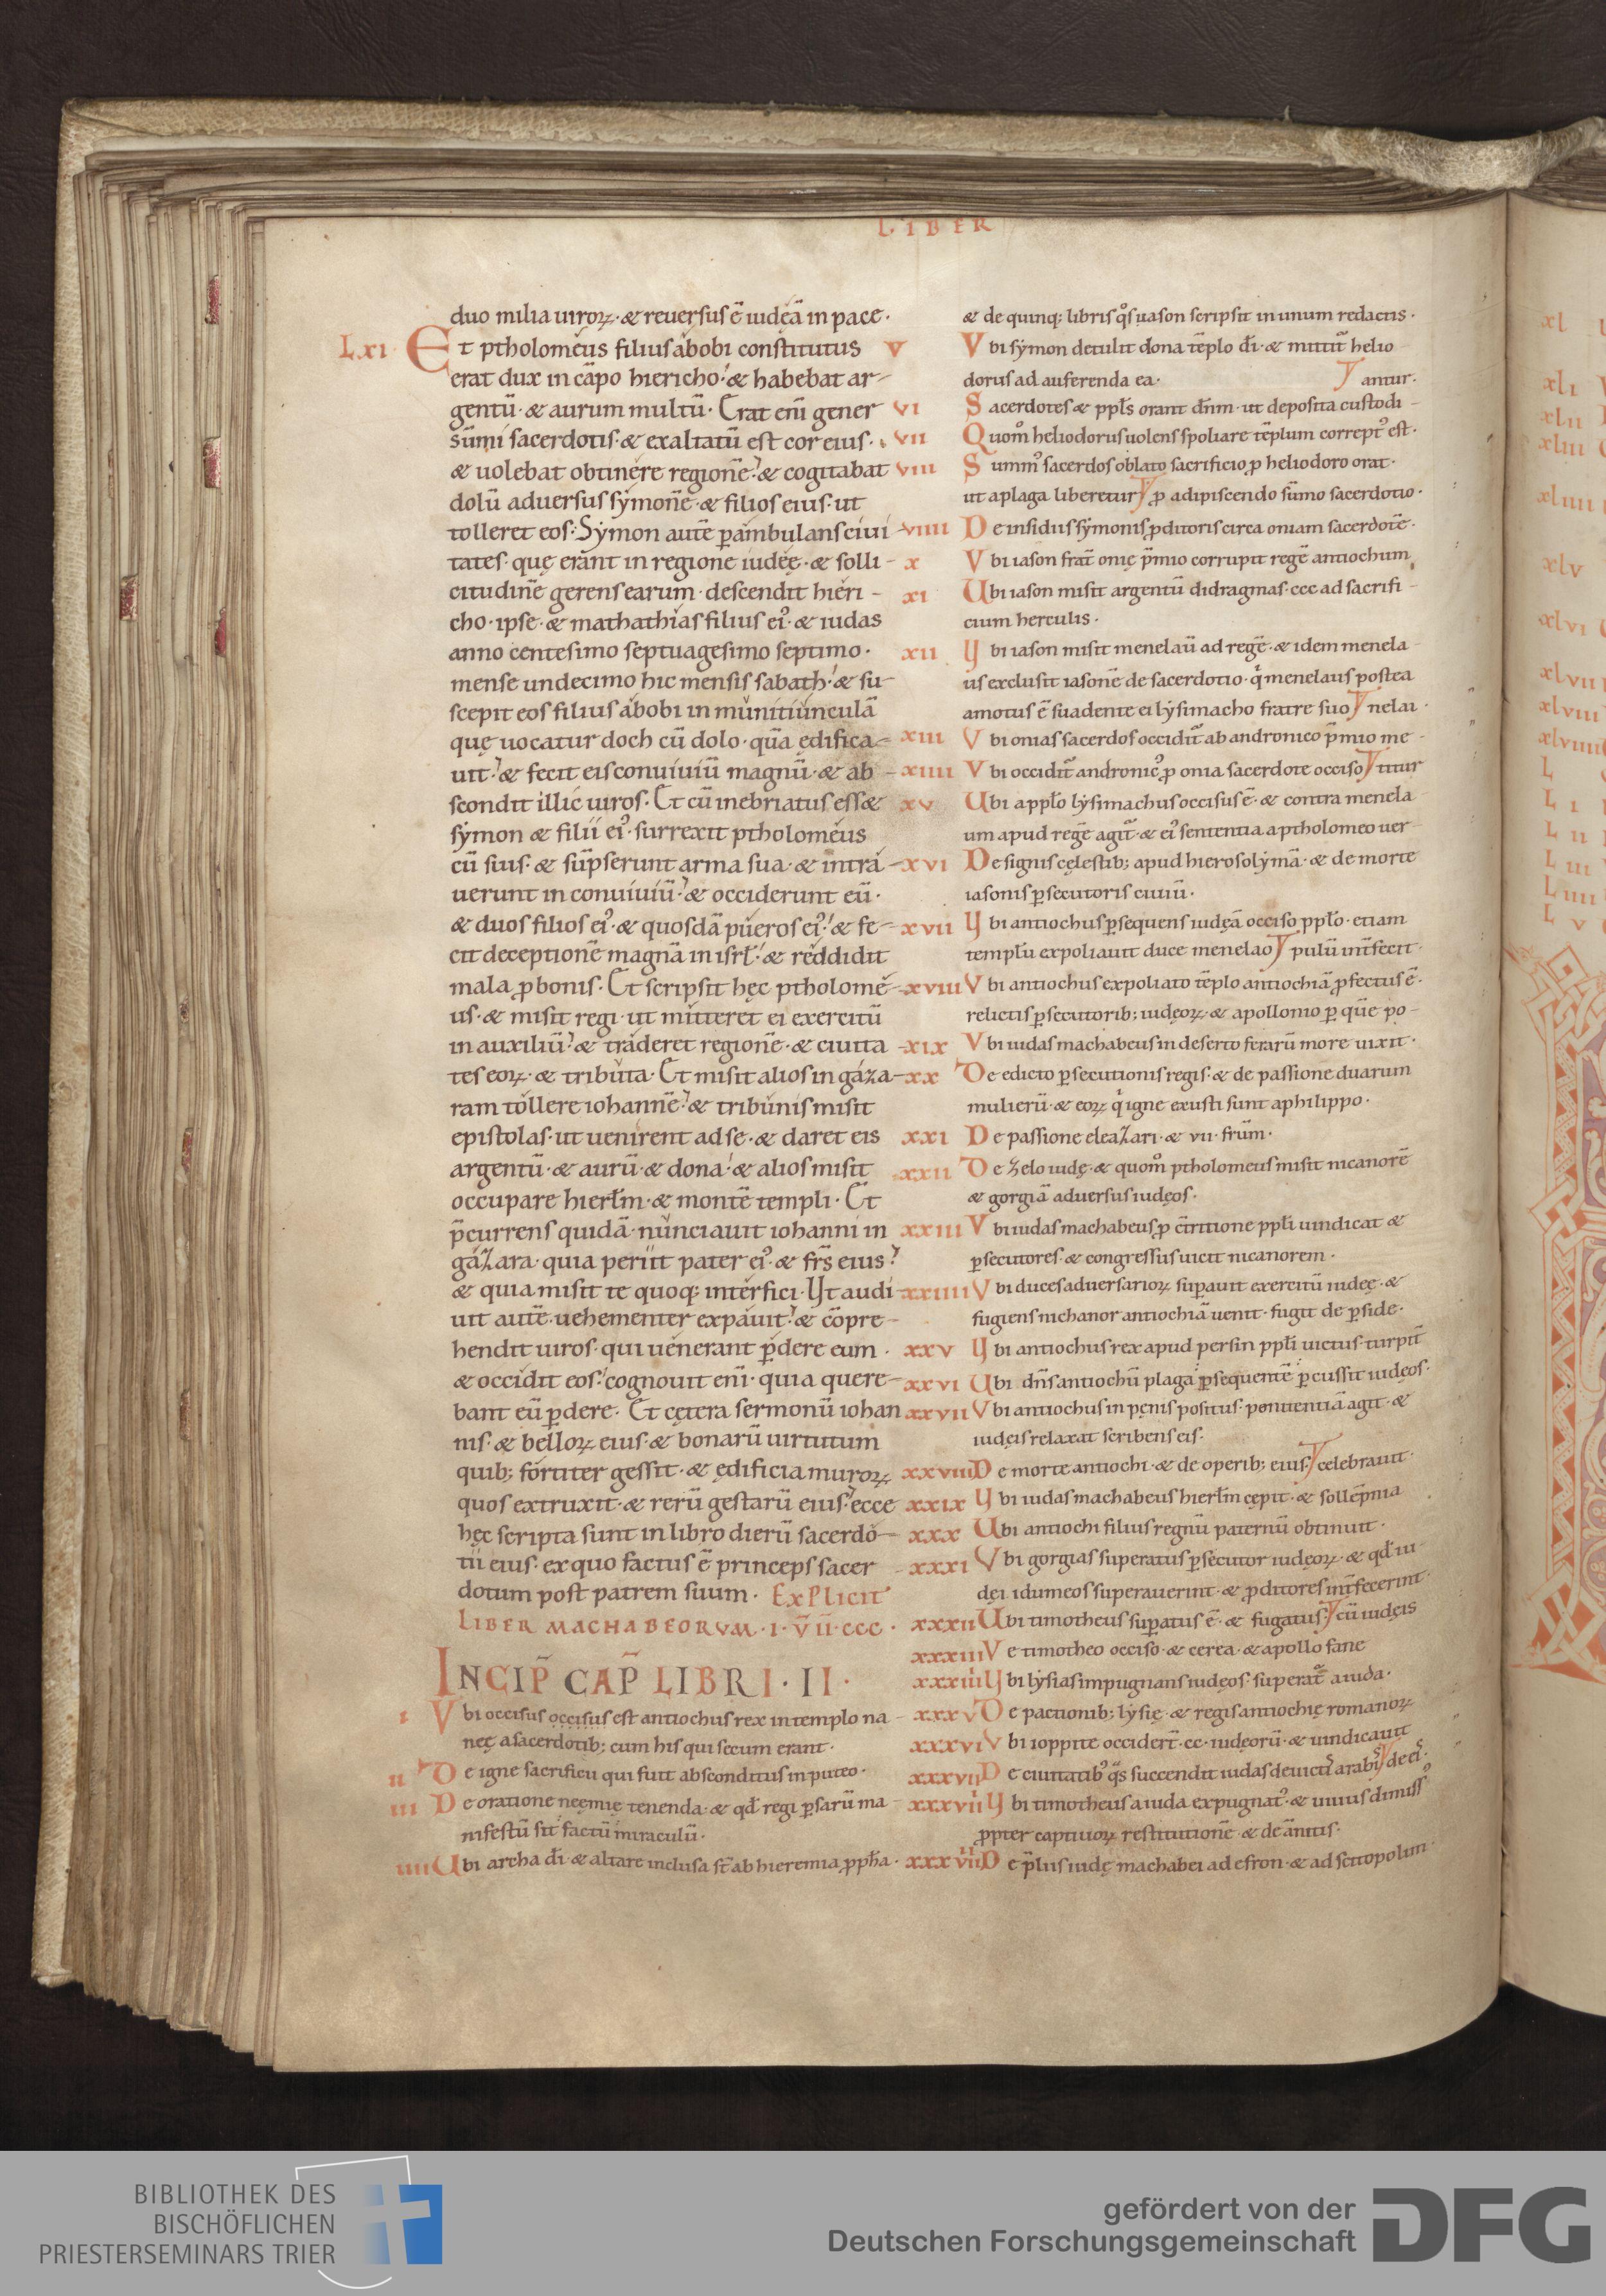 LIBER
duo milia uiroꝝ· & reuersus ē iudęā in pace·
LXI· Et ptholomeus filius abobi constitutus
erat dux in cāpo hiericho· & habebat ar-
gentū· & aurum multū· Erat enī gener
sūmi sacerdotis· & exaltatū est cor eius·
& uolebat obtinere regionē· & cogitabat
dolū aduersus sẏmonē· & filios eius· ut
tolleret eos· Sẏmon autē ꝑambulans ciui-
tates· quę erant in regione iudęę· & solli-
citudinē gerens earum· descendit hieri-
cho· ipse· & mathathias filius ei᾿· & iudas
anno centesimo septuagesimo septimo·
mense undecimo hic mensis sabath· & su-
scepit eos filius abobi in munitiunculā
quę uocatur doch cū dolo· quā ędifica-
uit· & fecit eis conuiuiū magnū· & ab-
scondit illic uiros· Et cū inebriatus ess&
sẏmon & filii ei᾿· surrexit ptholomeus
cū suis· & sūpserunt arma sua· & intra-
uerunt in conuiuiū· & occiderunt eū·
& duos filios ei᾿· & quosdā pueros ei᾿· & fe-
cit deceptionē magnā in isrł· & reddidit
mala ꝓ bonis· Et scripsit hęc ptholome-
us· & misit regi· ut mitteret ei exercitū
in auxiliū· & traderet regionē· & ciuita-
tes eoꝝ· & tributa· Et misit alios in gaza-
ram tollere iohannē· & tribunis misit
epistolas· ut uenirent ad se· & daret eis
argentū· & aurū· & dona· & alios misit
occupare hierłm· & montē templi· Et
p̄currens quidā· nunciauit iohanni in
gazara· quia periit pater ei᾿· & fr̄s eius·
& quia misit te quoq; interfici· Ut audi-
uit autē· uehementer expauit· & cōpre-
hendit uiros· qui uenerant ꝑdere eum·
& occidit eos· cognouit enī· quia quere-
bant eū ꝑdere· Et cętera sermonū iohan
nis· & belloꝝ eius· & bonarū uirtutum
quib; fortiter gessit· & ędificia muroꝝ
quos extruxit· & rerū gestarū eius· ecce
hęc scripta sunt in libro dierū sacerdo-
tii eius· ex quo factus ē princeps sacer
dotum post patrem suum· Explicit
LIBER MACHABEORVM·I·V̄II·CCC·
INCIP̄ CAP̄ LIBRI·II·
i Vbi occisus occisus est antiochus rex in templo na-
neę a sacerdotib; cum his qui secum erant·
ii De igne sacrificii qui fuit absconditus in puteo·
iii De oratione neemię tenenda· & qđ regi ꝑsarū ma-
nifestū sit factū miraculū·
iiii Ubi archa đi· & altare inclusa st̄ ab hieremia ꝓpħa·
& de quinq; libris qͦs iason scripsit in unum redactis·
V Vbi sẏmon detulit dona tēplo đi· & mittit᷑ helio-
dorus ad auferenda ea· antur·
VI Sacerdotes & ppłs orant dn̄m· ut deposita custodi-
VII Quom̊ heliodorus uolens spoliare tēplum corrept᾿ est·
VIII Summ᾿ sacerdos oblato sacrificio ꝓ heliodoro orat·
ut a plaga liberetur ꝓ adipiscendo sūmo sacerdotio·
VIIII De insidiis sẏmonis ꝓditoris circa oniam sacerdotē·
X Vbi iason frat̄ onię p̄mio corrupit regē antiochum
XI Ubi iason misit argentū didragmas· ccc ad sacrifi-
cium herculis·
XII Ubi iason misit menelaū ad regē· & idem menela-
us exclusit iasonē de sacerdotio· qͥ menelaus postea
amotus ē suadente ei lẏsimacho fratre suo nelai·
XIII Vbi onias sacerdos occidit᷑ ab andronico p̄mio me-
XIIII Vbi occidit᷑ andronic᾿ ꝓ onia sacerdote occiso titur
XV Ubi a ppło lẏsimachus occisus ē· & contra menela-
um apud regē agit᷑· & ei᾿ sententia a ptholomeo uer-
XVI De signis cęlestib; apud hierosolẏmā· & de morte
iasonis ꝑsecutoris ciuiū·
XVII Ubi antiochus ꝑsequens iudęā occiso ppło· etiam
templū expoliauit duce menelao pulū int̄fecit·
XVIII Vbi antiochus expoliato tēplo antiochiā ꝓfectus ē·
relictis ꝑsecutorib; iudęoꝝ· & apollonio ꝑ quē po-
XIX Vbi iudas machabeus in deserto ferarū more uixit·
XX De edicto ꝑsecutionis regis· & de passione duarum
mulierū· & eoꝝ qͥ igne exusti sunt a philippo·
XXI De passione eleazari· & vii· fr̄um·
XXII De zelo iudę· & quom̊ ptholomeus misit nicanorē
& gorgiā aduersus iudęos·
XXIII Vbi iudas machabeus ꝓ c̄tritione ppłi uindicat &
ꝑsecutores· & congressus uicit nicanorem·
XXIIII Vbi duces aduersarioꝝ suꝑauit exercitū iudęę· &
fugiens nichanor antiochiā uenit· fugit de ꝑside·
XXV Ubi antiochus rex apud persin ppłi uictus· turpit̄
XXVI Ubi dn̄s antiochū plaga ꝑsequentē ꝑcussit iudęos·
XXVII Vbi antiochus in pęnis positus· pęnitentiā agit· &
iudęis relaxat scribens eis·
XXVIII De morte antiochi· & de operib; eius· celebrauit·
XXIX Ubi iudas machabeus hierłm cępit· & sollēpnia
XXX Ubi antiochi filius regnū paternū obtinuit·
XXXI Vbi gorgias superatus ꝑsecutor iudęoꝝ· & qđ iu-
dęi idumeos superauerint· & ꝓditores int̄fecerint·
XXXII Ubi timotheus suꝑatus ē· & fugatus· cū iudęis
XXXIII Ve timotheo occiso· & cerea· & apollo fane
XXXIIII Ubi lẏsias impugnans iudęos· superat᷑ a iuda·
XXXV De pactionib; lẏsię· & regis antiochię romanoꝝ
XXXVI Vbi ioppite occidert̄· cc· iudęorū· & uindicauit
XXXVII De ciuitatib᾿ qͣs succendit iudas deuictis arabis de ei᾿·
XXXVIII Ubi timotheus a iuda expugnat᾿· & uiuus dimiss᾿
ꝓpter captiuoꝝ restitutionē· & de āmitis·
XXXVIIII De p̄liis iudę machabei ad efron· & ad scitopolim·
xl
xli
xlii
xliii
xliiii
xlv
xlvi
xlvii
xlviii
xlviiii
L
L i
L ii
L iii
L iiii
L v
BIBLIOTHEK DES
BISCHÖFLICHEN
PRIESTERSEMINARS TRIER
gefördert von der
Deutschen Forschungsgemeinschaft
DFG